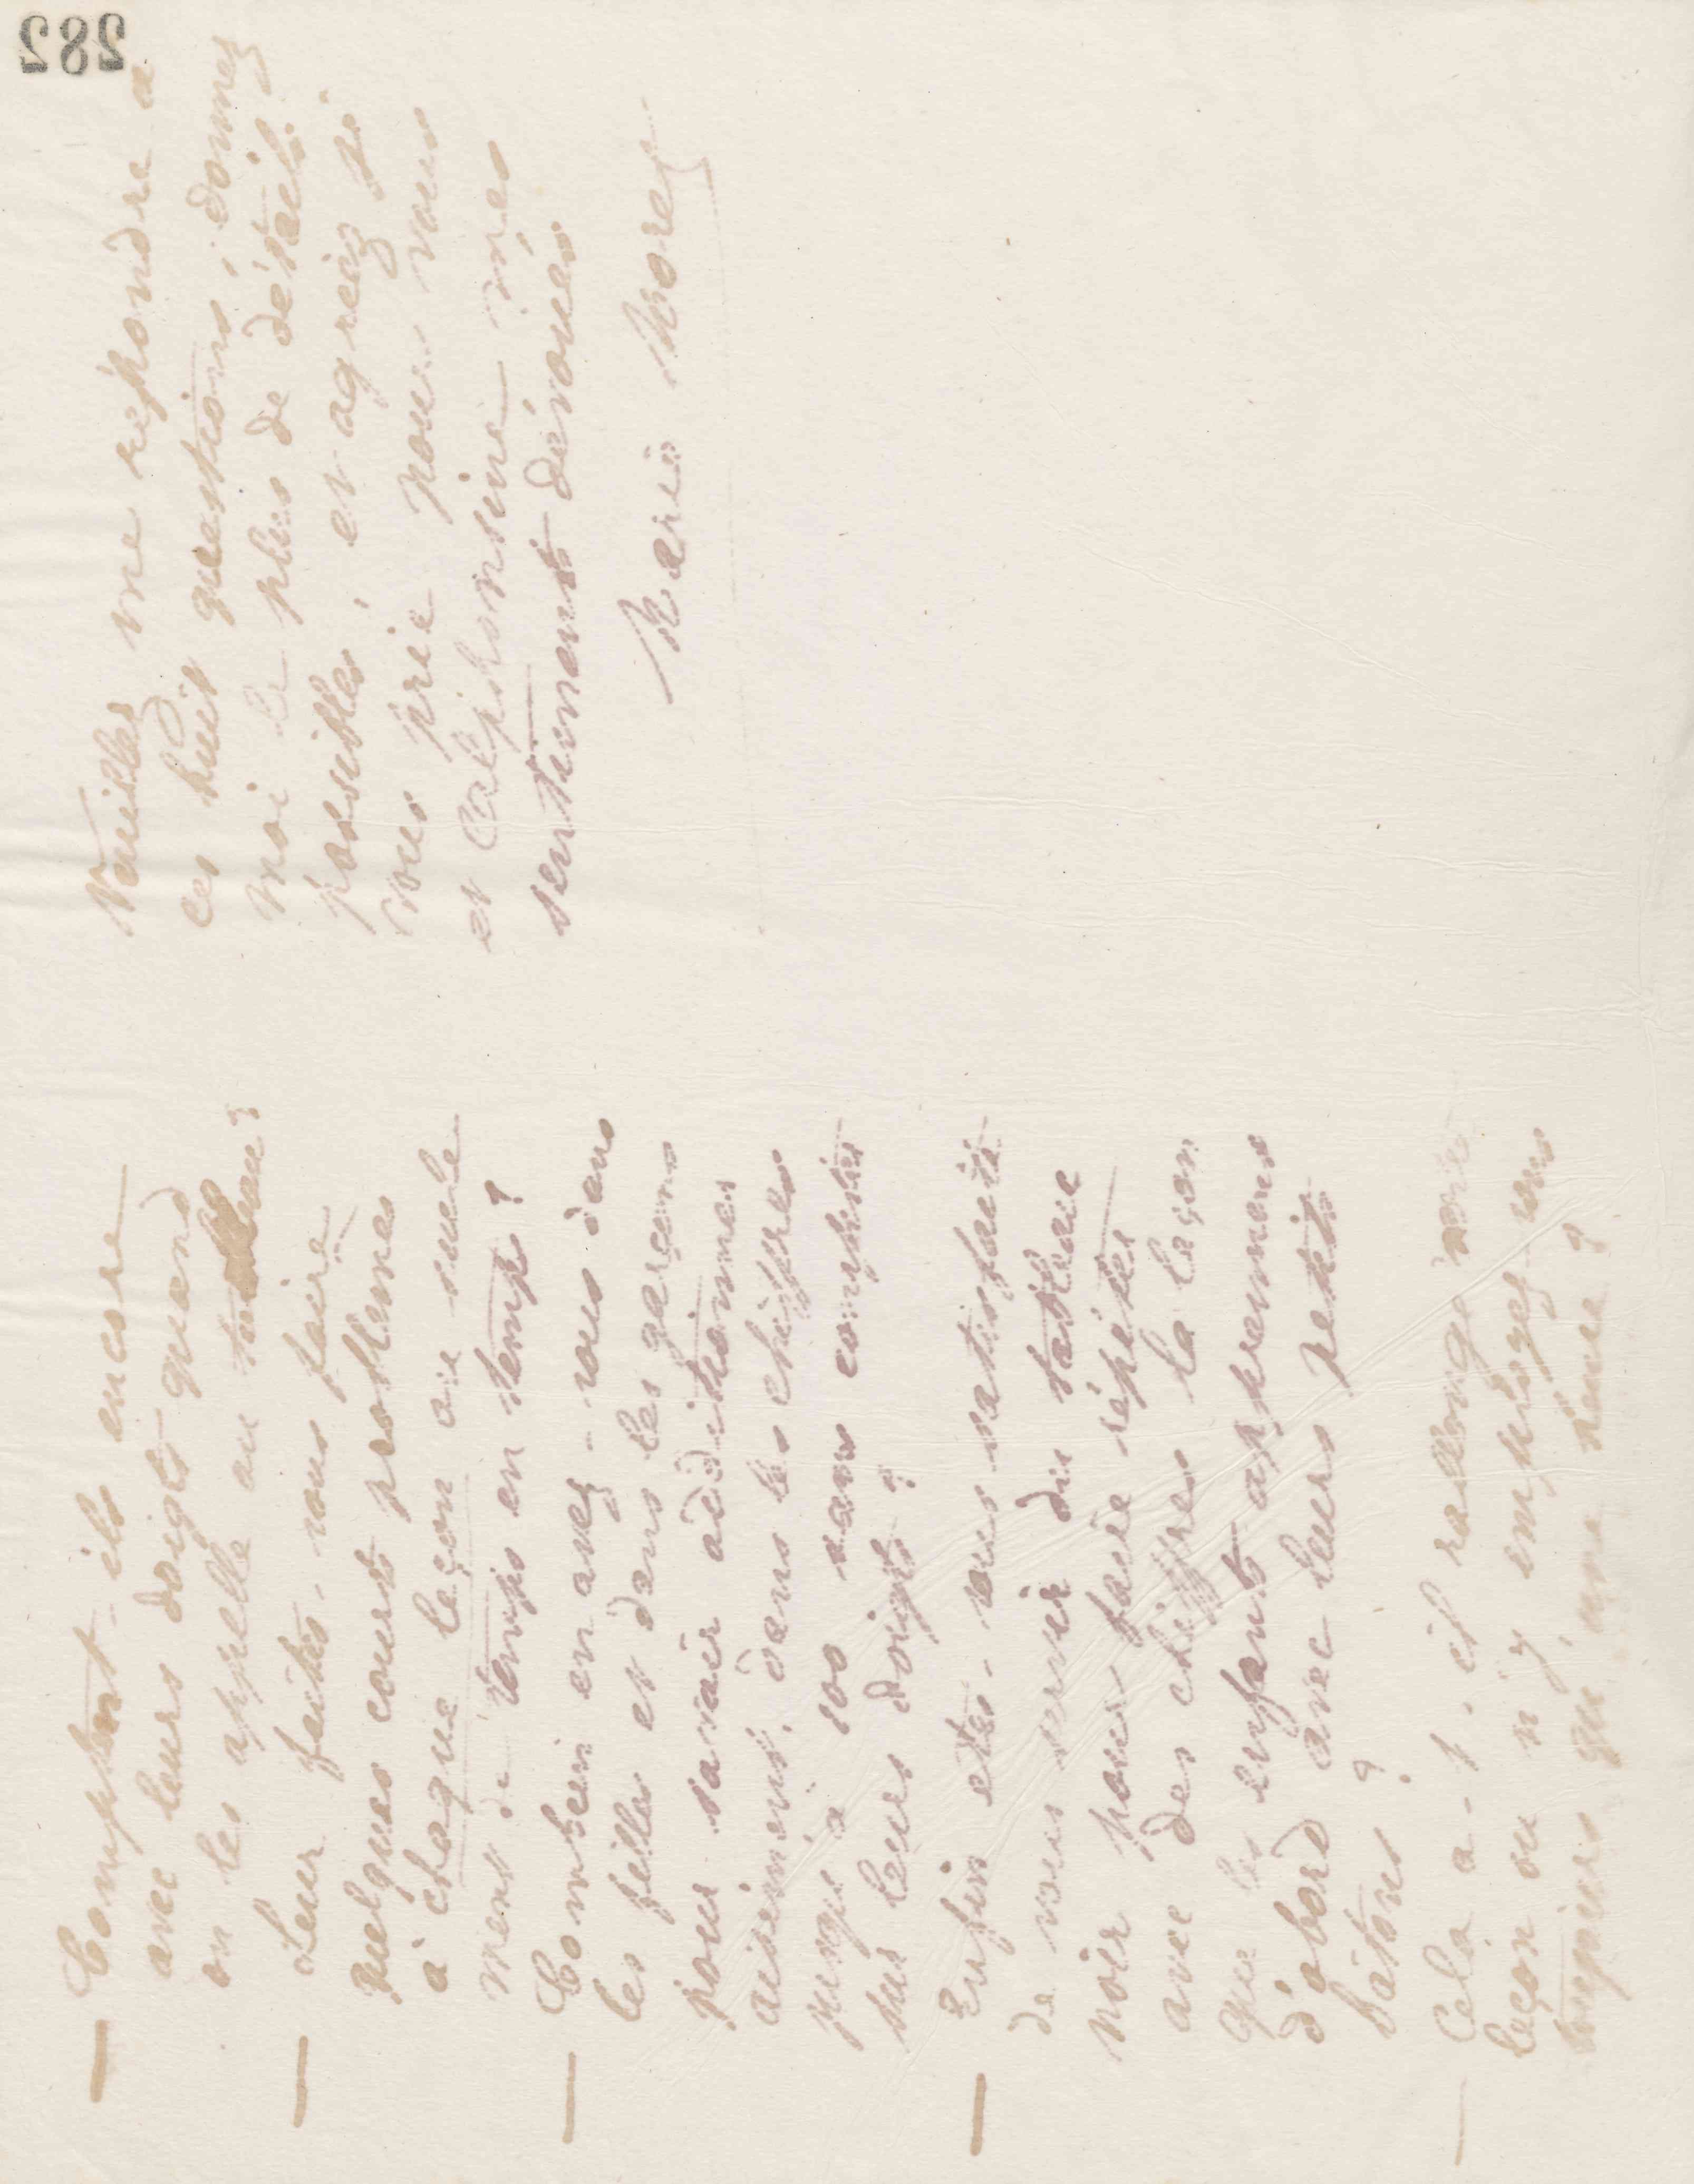 — Comptent-ils encore
avec leurs doigts quand
on les appelle au tableau?
— Leur faites-vous faire
quelques courts problèmes
à chaque leçon ou seule
ment de temps en temps?
— Combien en avez-vous dans
les filles et dans les garçons
pour savoir additionner
aisément, dans les chiffres
jusqu'à 100 sans compter
sur leurs doigts?
— Enfin etes-vous satisfaite
de vous servir du tableau
noir pour faire répéter
avec des chiffres la leçon
que les enfants apprennent
d'abord avec leurs petits
bâtons?
— Cela a-t-il rallongé votre
leçon ou n'y employez-vous
toujours qu'une heure?
Veuillez me répondre à
ces huit questions; donnez
moi le plus de détails
possibles, et agréez je
vous prie pour vous
et Calphonsine mes
sentiments dévoués
Marie Moret
282